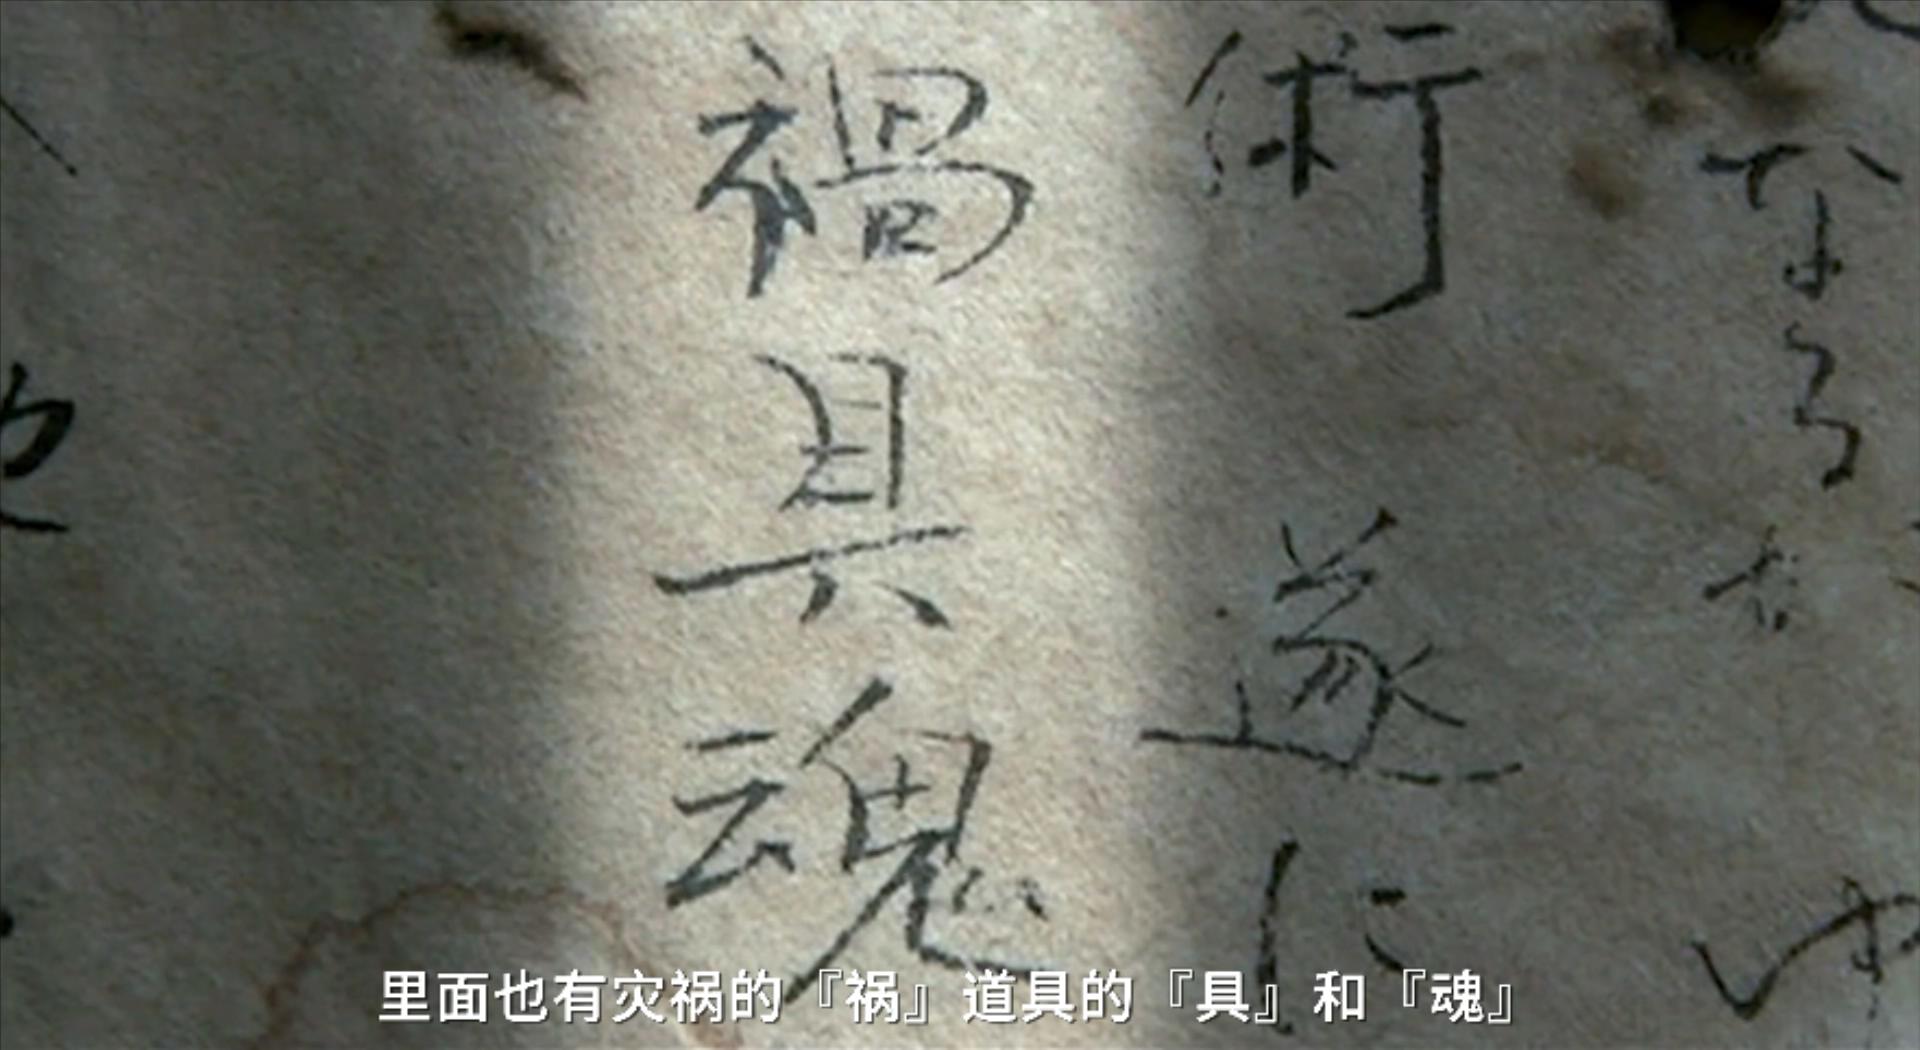 なるな
術 遂に
禍具魂
里面也有灾祸的『祸』道具的『具』和『魂』